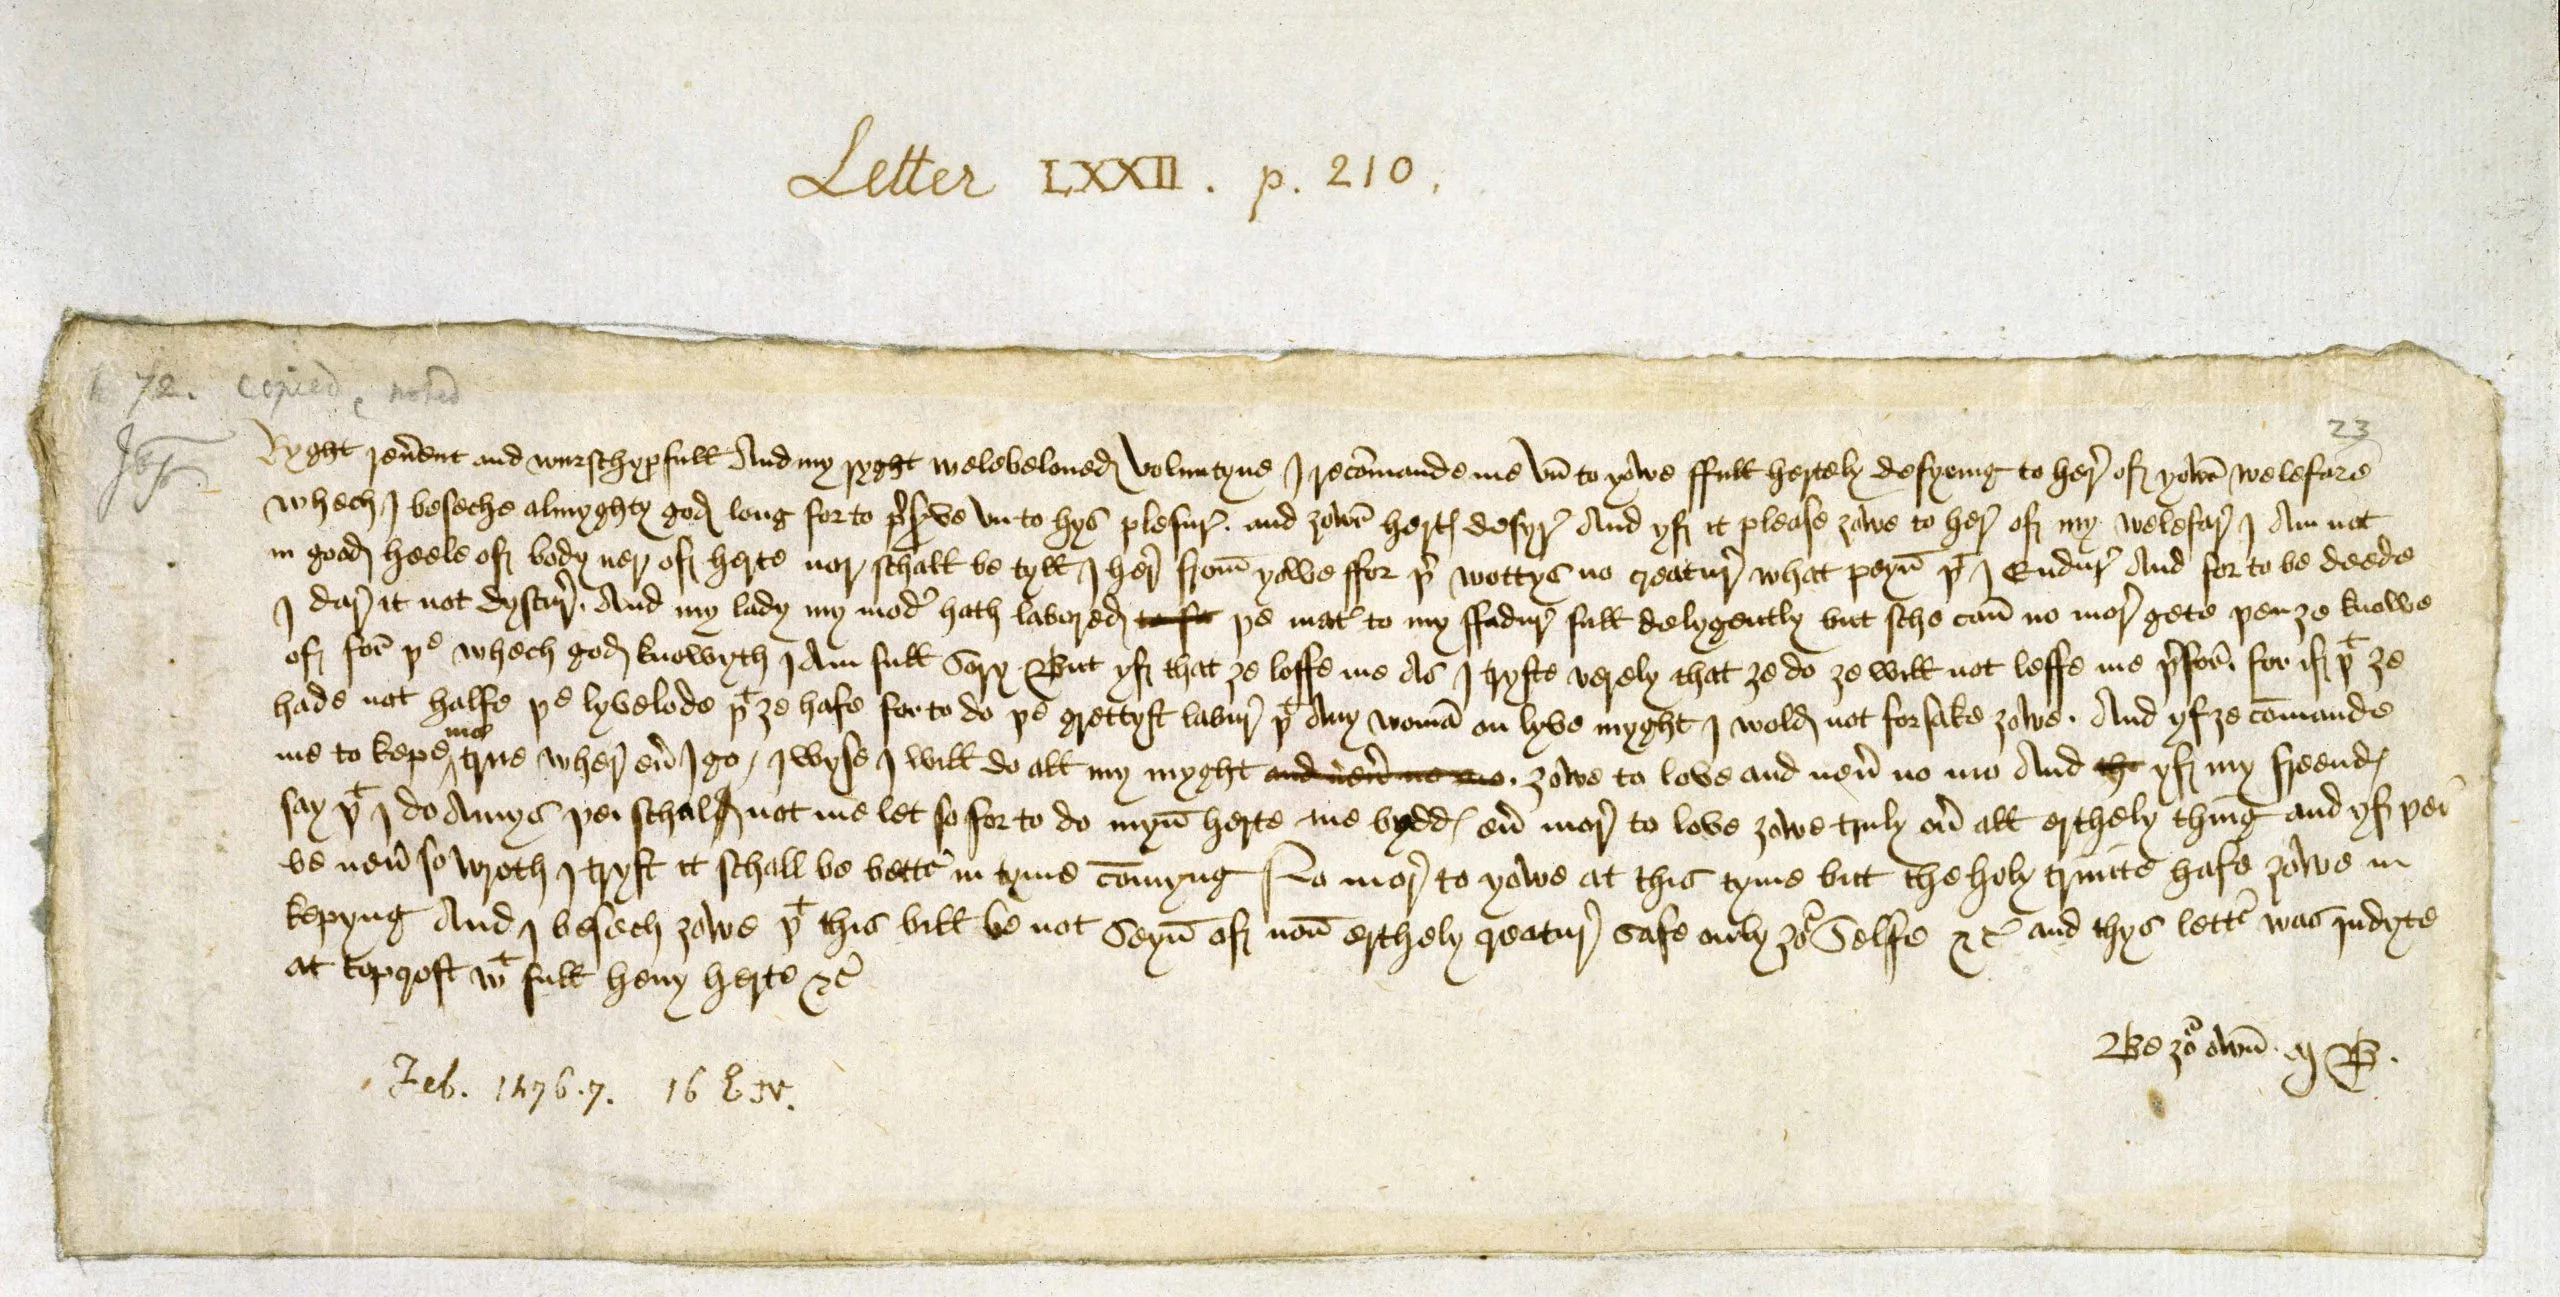 Letter LXXII. p. 210.
72. copied, noted
23
Ryght reu̅ent and wurschypfull And my ryght welebeloued Voluntyne I reco̅mande me vn̅ to yowe ffull hertely desyring to her̛ of yowr̛ welefare
whech I beseche almyghty god long for to p̛s̛ve vn to hys plesur̛. and ȝowr̛ herts desyr̛ And yf it please ȝowe to her̛ of my welefar̛ I Am not
in good heele of body ner of herte nor schall be tyll I her̛ from̅ yowe ffor þ̛ wottys no creatur̛ what peyn̅ þᵗ I Endur̛ And for to be deede
I dar̛ it not dyscur̛. And my lady my mod̛ hath labored ~~to fa~~ þe mat̛ to my ffadur̛ full delygently but sche can̅ no mor̛ gete þen ȝe knowe
of for̛ þe whech god knowyth I Am full Sory But yf that ȝe loffe me As I tryste verely that ȝe do ȝe will not leffe me þ̛for̛. for if þᵗ ȝe
hade not halfe þe lyvelode þᵗ ȝe hafe for to do þe grettyst labur̛ þᵗ Any woma̅ on lyve myght I wold not forsake ȝowe. And yf ȝe co̅mande
me to kepe me true wher̛ eu̅ I go / I wyse I will do all my myght ~~and neu̅ no mo~~. ȝowe to love and neu̅ no mo And ~~th~~ yf my freends
say þᵗ I do Amys þei schal not me let so for to do myn̅ herte me bydds eu̅ mor̛ to love ȝowe truly ou̅ all erthely thing and yf þei
be neu̅ so wroth I tryst it schall be bett̛ in tyme co̅myng No mor̛ to yowe at this tyme but the holy trinite hafe ȝowe in
kepyng And I besech ȝowe þᵗ this bill be not Seyn̅ of non̅ erthely creatur̛ safe only ȝoʳ Selfe &c̛ and thys lett̛ was indyte
at topcroft wᵗ full heuy herte &c̛
Be ȝoʳ own̅. M B.
Feb. 1476.7. 16 E. IV.